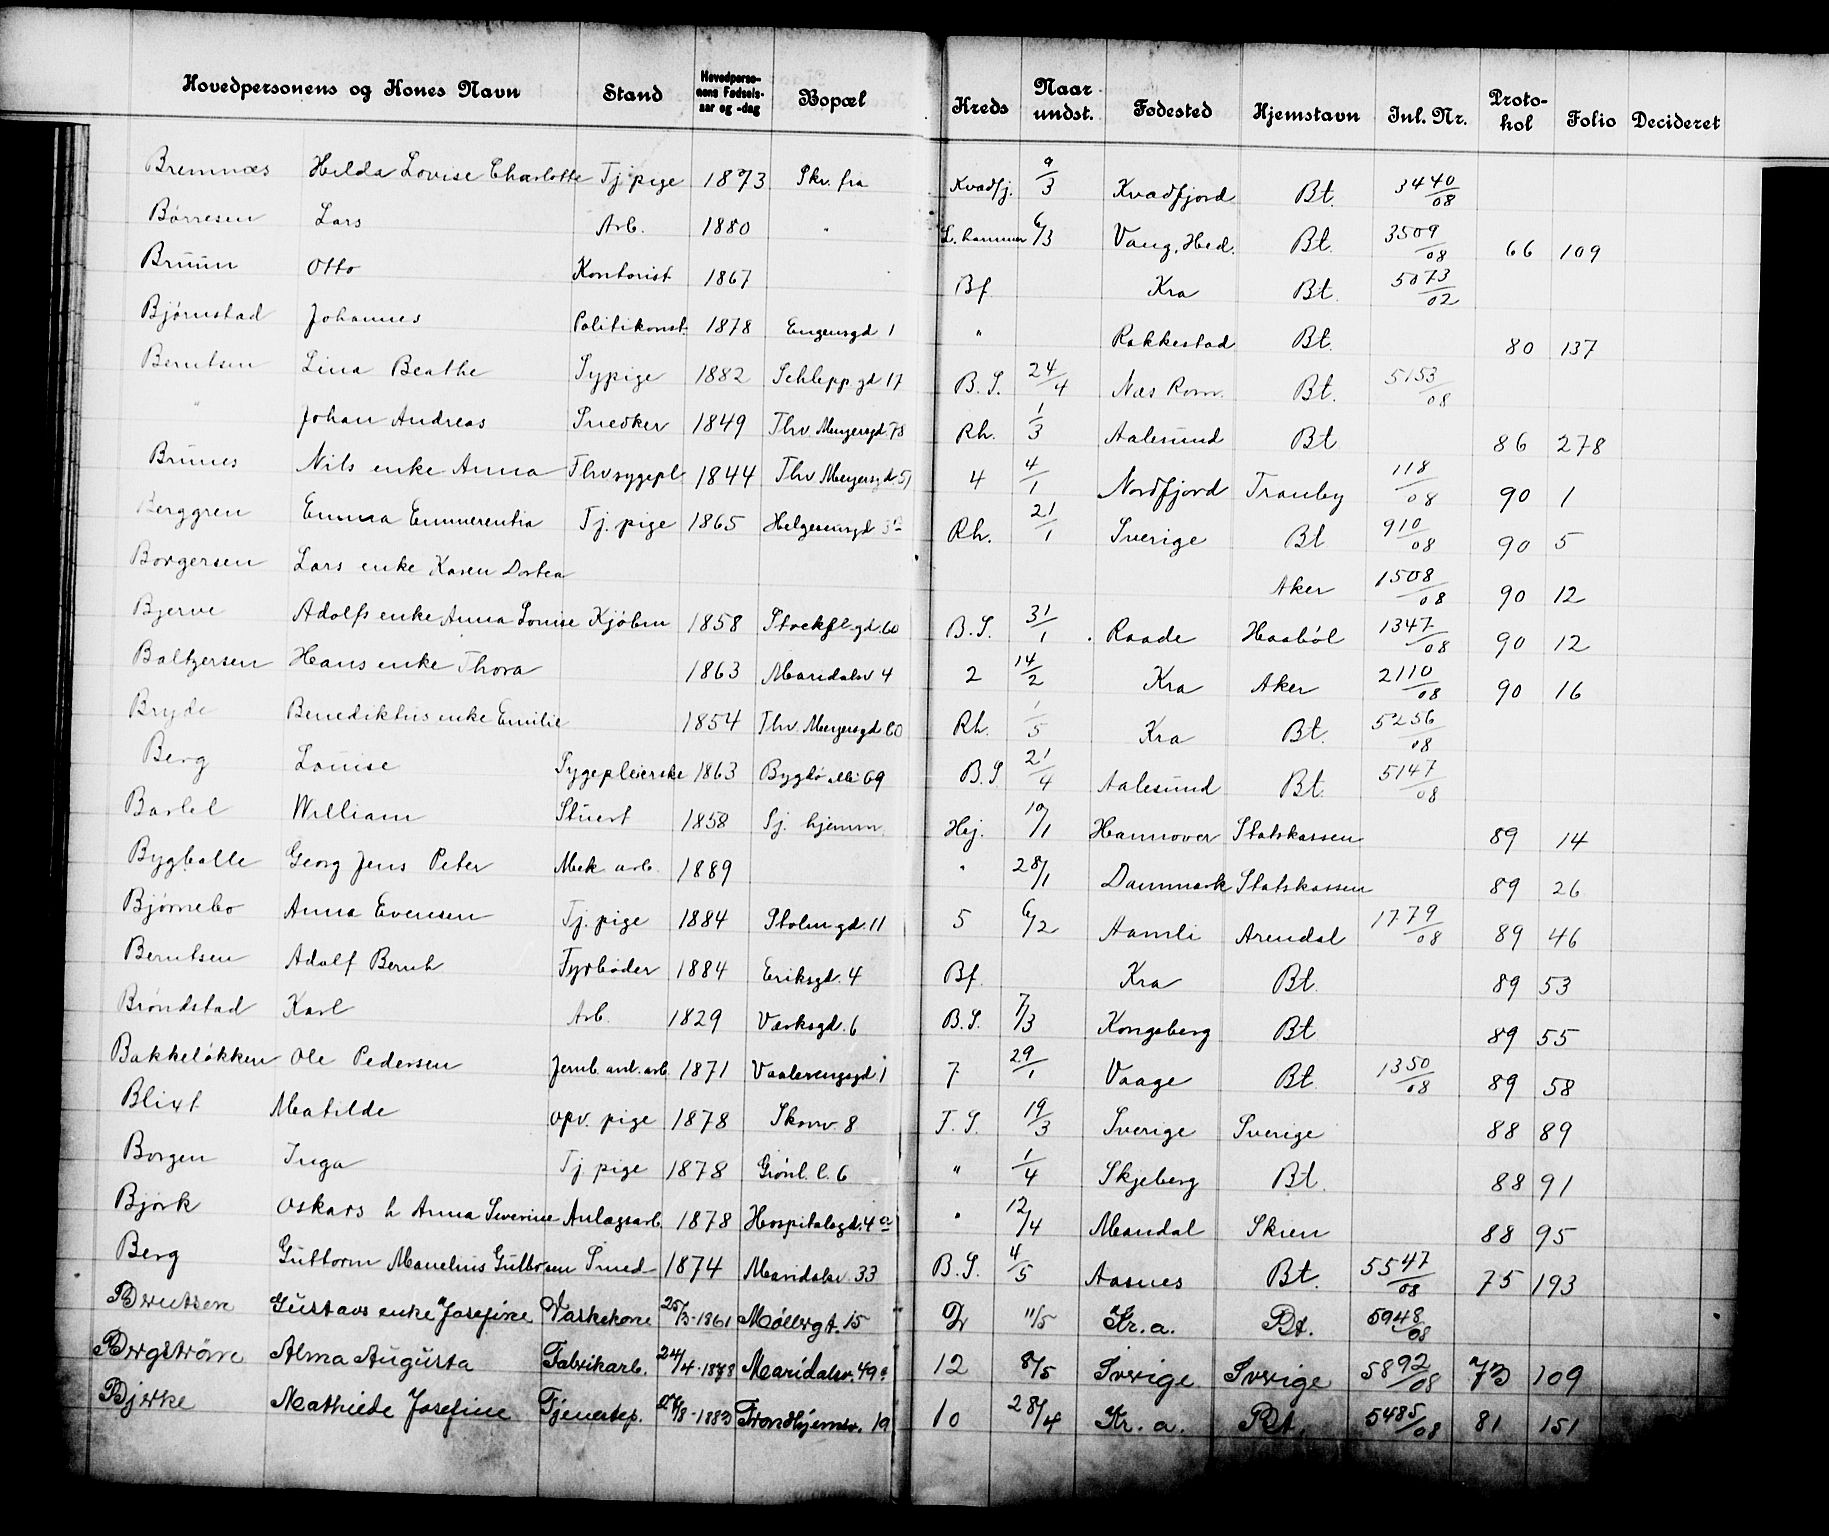 Hovedpersonens og Kones Navn Stand Hovedperso-nens Fødsels-aar og -dag Bopæl Kreds Naar undst. Fødested Hjemstavn Inl. Nr. Proto-kol Folio Decideret
Bremnæs Hilda Lovise Charlotte Tj. pige 1873 Skr. fra Kvædfj. 9/3 Kvædfjord Bt. 3440/08
Børresen Lars Arb. 1880 " L. hammer 6/3 Vang, Hed. Bt. 3509/08 66 109
Bruun Otto Kontorist 1867 Bf. Kra Bt. 5073/02
Bjørnstad Johannes Politikonst. 1878 Eugensgd 1 " Rakkestad Bt. 80 137
Berntsen Lina Beathe Sypige 1882 Schleppgd 17 B. S. 24/4 Næs Rom. Bt. 5153/08
" Johan Andreas Snedker 1849 Thv Meyersgd 78 Rh. 1/3 Aalesund Bt 86 278
Brunes Nils enke Anna Thv sygepl 1844 Thv Meyersgd. 51 4 4/1 Nordfjord Tranby 118/08 90 1
Berggren Emma Emmerentia Tj. pige 1865 Helgesensgd Rh. 21/1 Sverige Bt 910/08 90 5
Borgersen Lars enke Karen Dortea Aker 1508/08 90 12
Bjerve Adolfs enke Anna Louise Kjøbm 1858 Stockfl.gd. 60 B. S. 31/1 Raade Haabøl 1347/08 90 12
Baltzersen Hans enke Thora 1863 Maridalsv 4 2 14/2 Kra Aker 2110/08 90 16
Bryde Benediktus enke Emilie 1854 Thv. Meyersgd 60 Rh. 1/5 Kra Bt. 5256/08
Berg Louise Sygepleierske 1863 Bygdø alle 69 B. S 21/4 Aalesund Bt. 5147/08
Bartel William Stuert 1858 Sj. hjemm. Hej. 10/1 Hannover Statskassen 89 14
Bygballe Georg Jens Peter Mek arb. 1889 " 28/1 Danmark Statskassen 89 26
Bjørnebo Anna Evensen Tj. pige 1884 Stolmgd. 11 5 6/2 Aamli Arendal 1779/08 89 46
Berntsen Adolf Bernh Fyrbøder 1884 Eriksgd. 4 Bf. Kra Bt. 89 53
Brøndstad Karl Arb. 1829 Værksgd. 6 B. S. 7/3 Kongsberg Bt 89 55
Bakkeløkken Ole Pedersen Jernb. anl. arb 1871 Vaalerengsgd 1 7 29/1 Vaage Bt. 1350/08 89 58
Blixt Matilde opv. pige 1878 Skomv. 8 T. S. 19/3 Sverige Sverige 88 89
Borgen Inga Tj. pige 1878 Grønl. l. 6 " 1/4 Skjeberg Bt. 88 91
Bjørk Oskars h Anna Severine Anlægsarb 1878 Hospitalsgd. 4a " 12/4 Mandal Skien 88 95
Berg Guttorm Manelius Gulbrsen Smed 1874 Maridalsv. 33 B. S. 4/5 Aasnes Bt. 5547/08 75 193
Berntsen Gustavs enke Josefine Vaskekone 25/3-1861 Møllergt. 15 11/5 Kr. a. Bt. 5948/08
Bergstrøm Alma Augusta Fabrikarb. 24/4-1878 Maridalsv. 49 12 8/5 Sverige Sverige 5892/08 73 109
Bjerke Mathilde Josefine Tjenestep. 1883 Trondhjemsv. 19 10 28/4 Kr. a. Bt. 5485/08 81 151